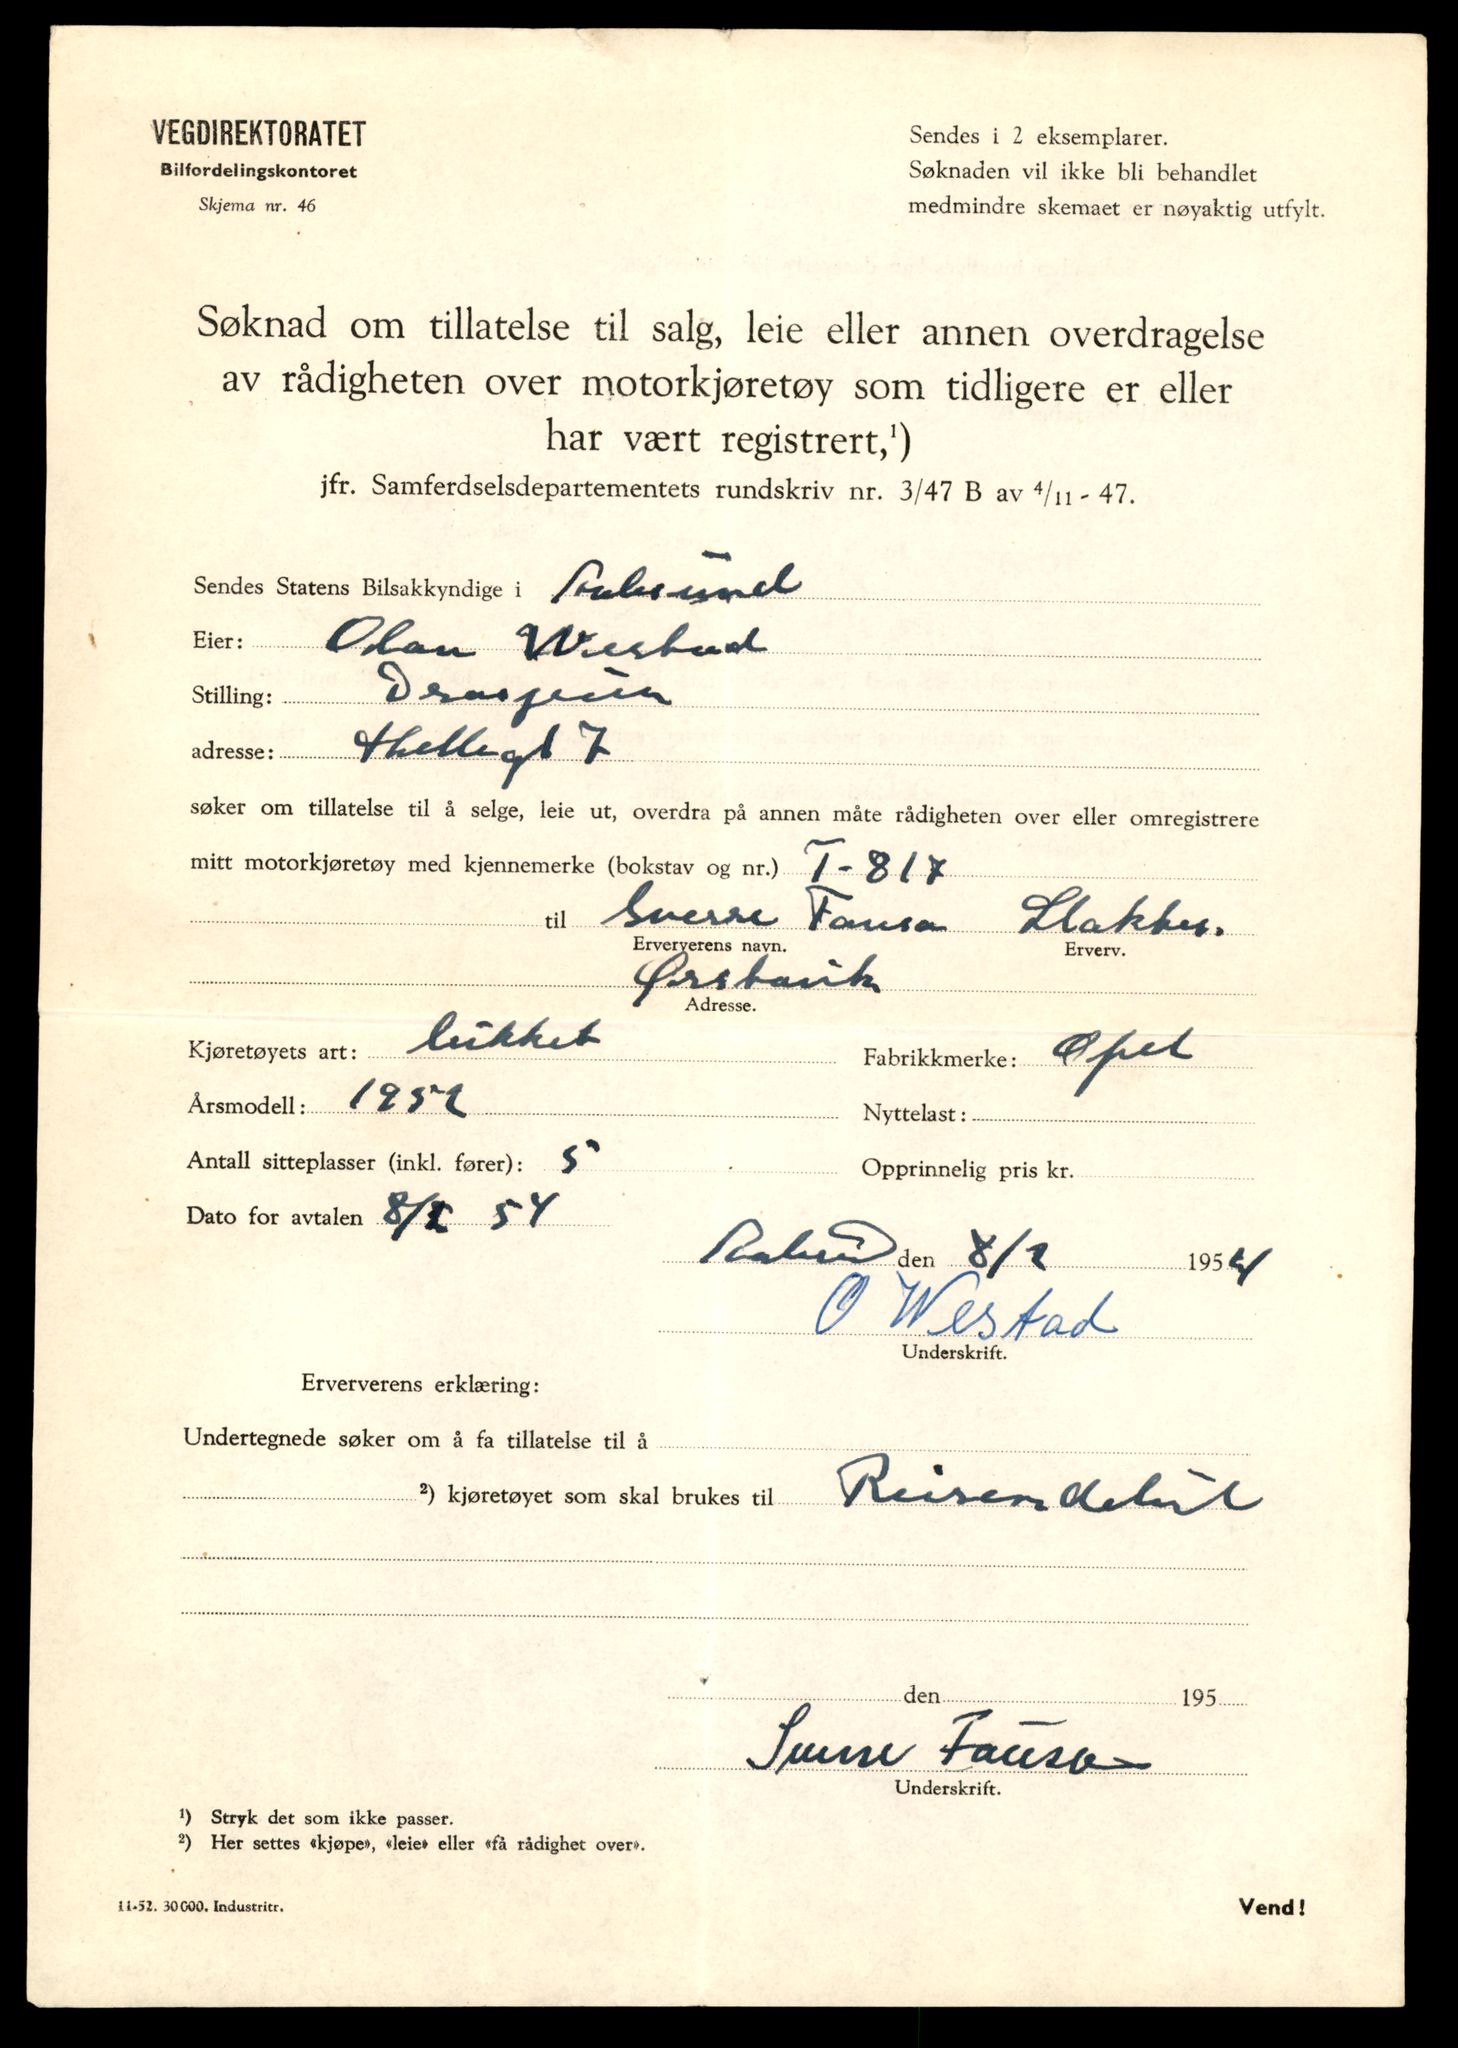 VEGDIREKTORATET
Bilfordelingskontoret
Skjema nr. 46
Sendes i 2 eksemplarer.
Søknaden vil ikke bli behandlet
medmindre skemaet er nøyaktig utfylt.
Søknad om tillatelse til salg, leie eller annen overdragelse
av rådigheten over motorkjøretøy som tidligere er eller
har vært registrert,¹)
jfr. Samferdselsdepartementets rundskriv nr. 3/47 B av 4/11 - 47.
Sendes Statens Bilsakkyndige i Aalesund
Eier: Olav Westad
Stilling:
adresse: 7
søker om tillatelse til å selge, leie ut, overdra på annen måte rådigheten over eller omregistrere
mitt motorkjøretøy med kjennemerke (bokstav og nr.) T-817
til Sverre Fausa
Erververens navn. Erverv.
Ørstavik
Adresse.
Kjøretøyets art: lukket Fabrikkmerke: Opel
Årsmodell: 1952 Nyttelast:
Antall sitteplasser (inkl. fører): 5 Opprinnelig pris kr.
Dato for avtalen 8/2 54
den 8/2 1954
O Westad
Underskrift.
Erververens erklæring:
Undertegnede søker om å fa tillatelse til å
²) kjøretøyet som skal brukes til Reisendebil
den 195
Sverre Fausa
Underskrift.
¹) Stryk det som ikke passer.
²) Her settes «kjøpe», «leie» eller «få rådighet over».
11-52. 30000. Industritr.
Vend!